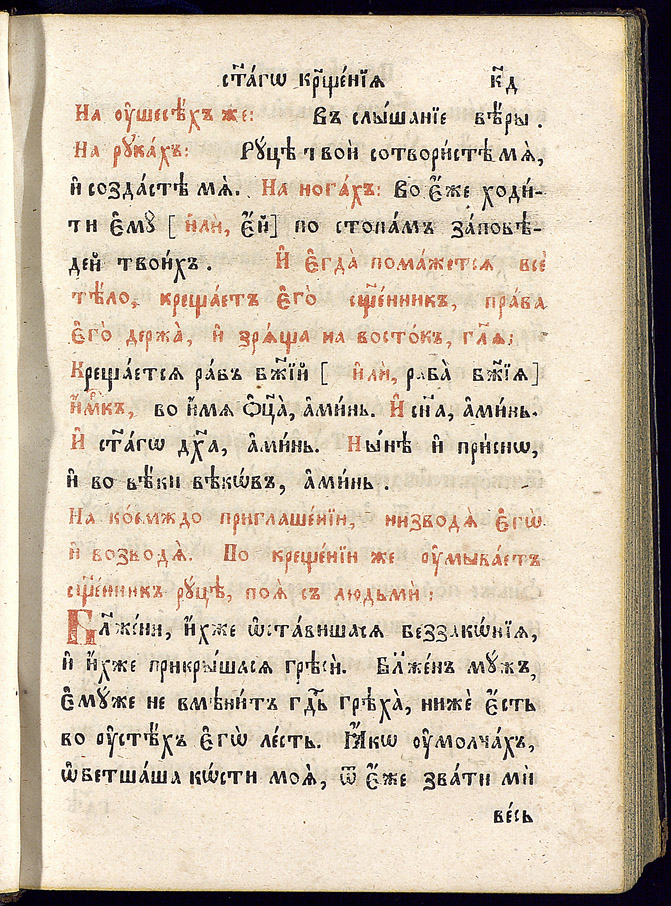 ст҃а́гѡ кр҃ще́нїѧ к҃д
На ᲂу҆шесѣ́хъ же: Въ слы́шанїе вѣ́ры.
На рꙋка́хъ: Рꙋцѣ твоѝ сотвори́стѣ мѧ̀,
и҆ созда́стѣ мѧ̀. На нога́хъ: Во є҆́же ходи́-
ти є҆мꙋ̀ [ и҆лѝ, є҆́й] по стопа́мъ за́повѣ-
де́й твои́хъ. И҆ є҆гда̀ пома́жетсѧ всѐ
тѣ́ло, креща́етъ є҆го̀ сщ҃е́нникъ, пра́ва
є҆го̀ держа̀, и҆ зрѧ́ща на восто́къ, гл҃ѧ:
Креща́етсѧ ра́въ бж҃їй [ и҆лѝ, раба̀ бж҃їѧ]
и҆м҃къ, во и҆́мѧ ѻ҆ц҃а̀, а҆ми́нь. И҆ сн҃а, а҆ми́нь.
И҆ ст҃а́гѡ дх҃а, а҆ми́нь. Ны́нѣ и҆ при́снѡ,
и҆ во вѣ́ки вѣкѡ́въ, а҆ми́нь.
На ко́емждо приглаше́нїи, низводѧ̀ є҆го̀
и҆ возводѧ̀. По креще́нїи же ᲂу҆мыва́етъ
сщ҃е́нникъ рꙋцѣ̀, поѧ̀ съ людьмѝ:
Бл҃же́ни, и҆́хже ѡ҆ста́вишасѧ беззакѡ́нїѧ,
и҆ и҆́хже прикры́шасѧ грѣсѝ. Бл҃же́нъ мꙋ́жъ,
є҆мꙋ́же не вмѣни́тъ гд҇ь грѣха̀, нижѐ є҆́сть
во ᲂу҆стѣ́хъ є҆гѡ̀ ле́сть. Ꙗ҆́кѡ ᲂу҆молча́хъ,
ѡ҆бетша́ша кѡ́сти моѧ̀, ѿ є҆́же зва́ти мѝ
ве́сь